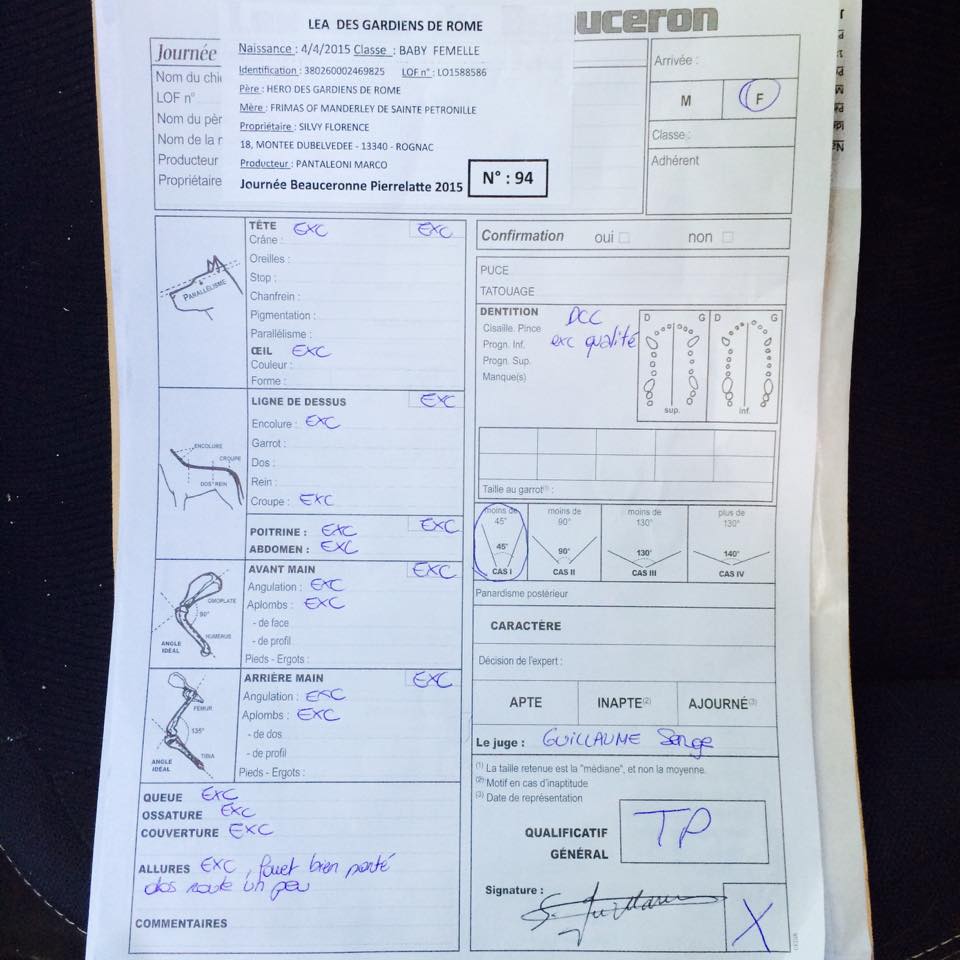 LEA DES GARDIENS DE ROME
uceron
Journée
Naissance : 4/4/2015 Classe : BABY FEMELLE
Identification : 380260002469825 LOF n° : LO1588586
Père : HERO DES GARDIENS DE ROME
Mère : FRIMAS OF MANDERLEY DE SAINTE PETRONILLE
Propriétaire : SILVY FLORENCE
18, MONTEE DUBELVEDEE - 13340 - ROGNAC
Producteur : PANTALEONI MARCO
Journée Beauceronne Pierrelatte 2015
N° : 94
Nom du chi
LOF n°
Nom du pèr
Nom de la
Producteur
Propriétaire
Arrivée :
M F
Classe :
Adhérent
PARALLÉLISME
TÊTE EXC EXC
Crâne :
Oreilles :
Stop :
Chanfrein :
Pigmentation :
Parallélisme :
ŒIL EXC
Couleur :
Forme :
ENCOLURE
CROUPE
DOS REIN
LIGNE DE DESSUS EXC
Encolure : EXC
Garrot :
Dos :
Rein :
Croupe : EXC
POITRINE : EXC EXC
ABDOMEN : EXC
OMOPLATE
90°
HUMÉRUS
ANGLE
IDÉAL
AVANT MAIN EXC
Angulation : EXC
Aplombs : EXC
- de face
- de profil
Pieds - Ergots :
FÉMUR
135°
TIBIA
ANGLE
IDÉAL
ARRIÈRE MAIN EXC
Angulation : EXC
Aplombs : EXC
- de dos
- de profil
Pieds - Ergots :
QUEUE EXC
OSSATURE EXC
COUVERTURE EXC
ALLURES EXC, fouet bien porté
dos roule un peu
COMMENTAIRES
Confirmation oui non
PUCE
TATOUAGE
DENTITION DCC
Cisaille. Pince exc qualité
Progn. Inf.
Progn. Sup.
Manque(s)
D G D G
sup. inf.
Taille au garrot(1) :
moins de 45° moins de 90° moins de 130° plus de 130°
45° 90° 130° 140°
CAS I CAS II CAS III CAS IV
Panardisme postérieur
CARACTÈRE
Décision de l'expert :
APTE INAPTE(2) AJOURNÉ(3)
Le juge : GUILLAUME Serge
(1) La taille retenue est la "médiane", et non la moyenne.
(2) Motif en cas d'inaptitude
(3) Date de représentation
QUALIFICATIF
GÉNÉRAL
TP
Signature :
X